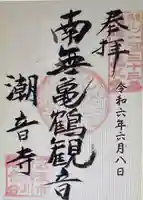 奉拝
令和六年六月八日
南無亀鶴観音
潮音寺